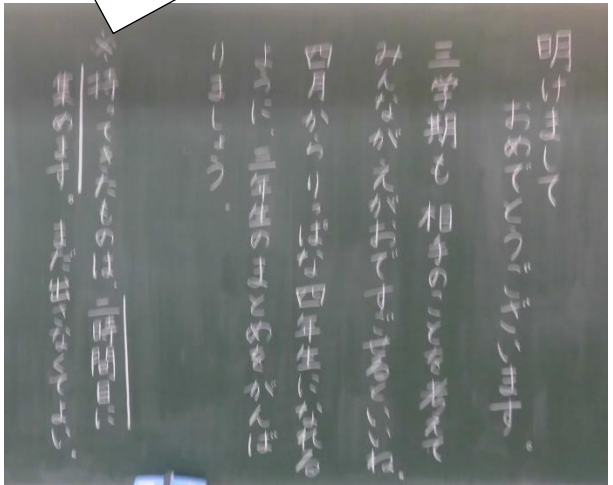 明けまして
おめでとうございます。
三学期も 相手のことを考えて
みんながえがおですごせるといいね。
四月からりっぱな四年生になれる
ように、三年生のまとめをがんば
りましょう。
※持ってきたものは、二時間目に
集めます。まだ出さなくてよい。